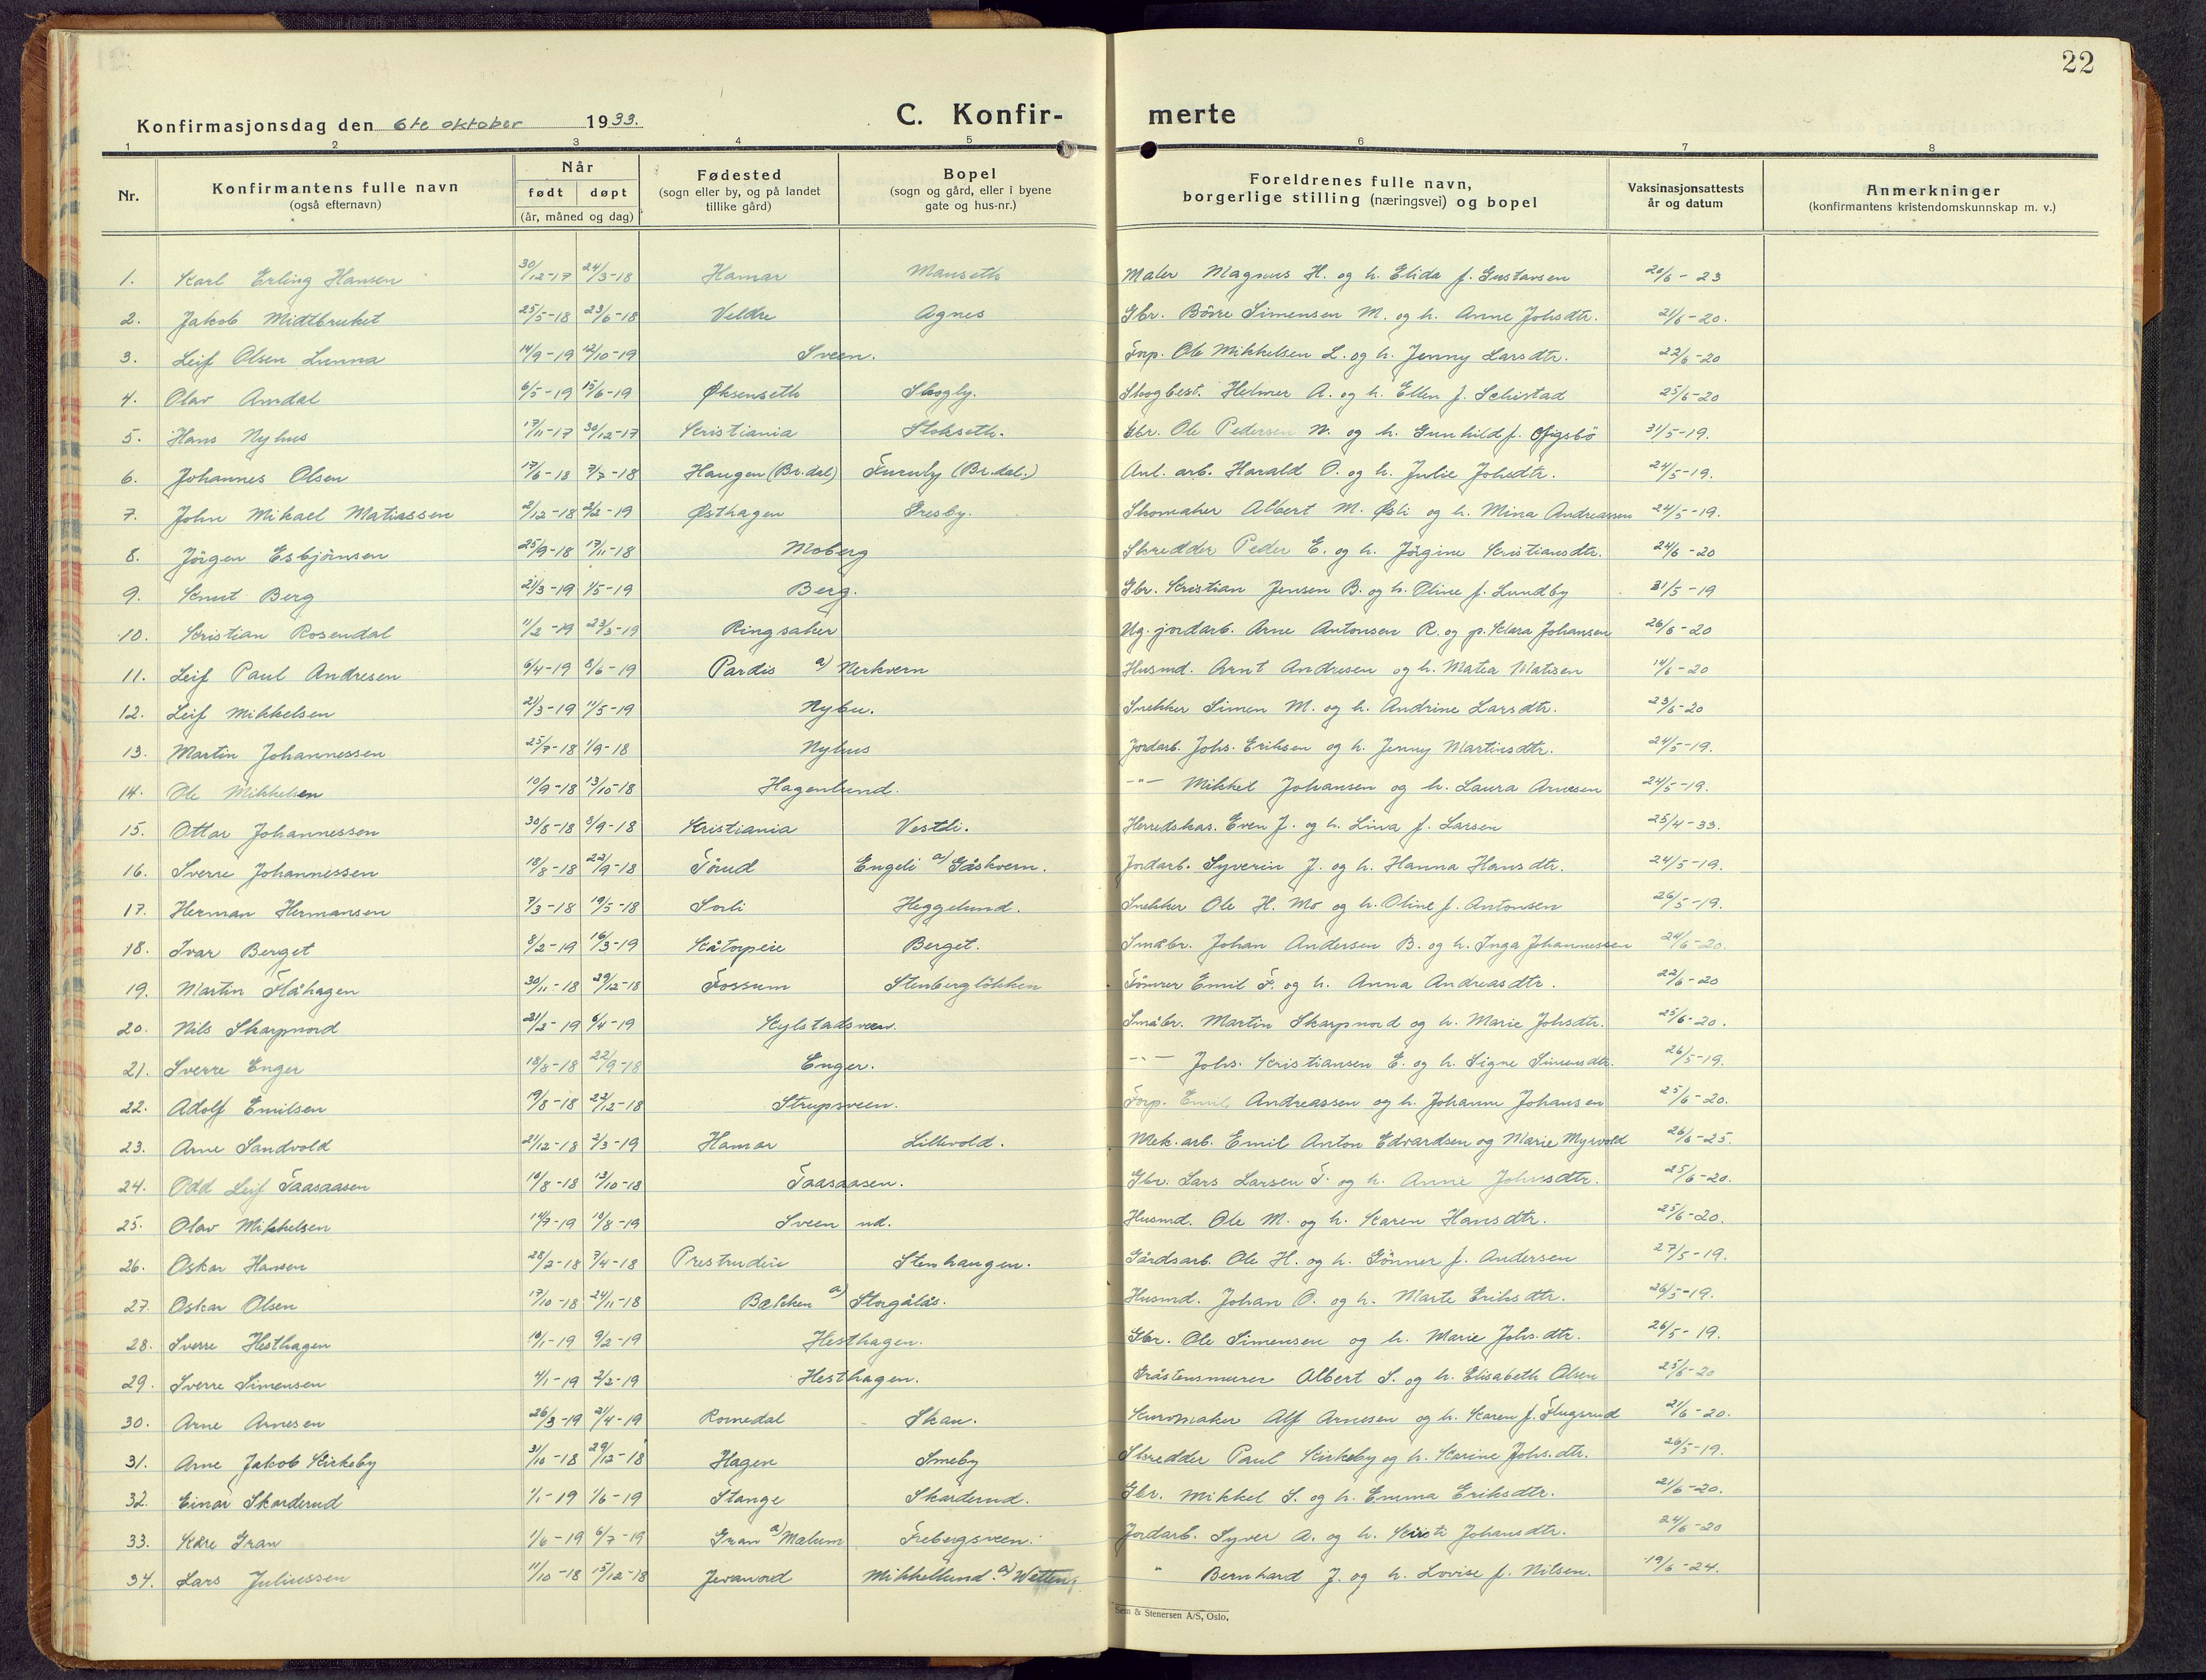 22
Konfirmasjonsdag den 6te oktober 1933. C. Konfir- merte
1 2 3 4 5 6 7 8
Nr. Konfirmantens fulle navn (også efternavn) Når født døpt (år, måned og dag) Fødested (sogn eller by, og på landet tillike gård) Bopel (sogn og gård, eller i byene gate og hus-nr.) Foreldrenes fulle navn, borgerlige stilling (næringsvei) og bopel Vaksinasjonsattests år og datum Anmerkninger (konfirmantens kristendomskunnskap m. v.)
1. Karl Erling Hansen 30/12-17 24/3-18 Hamar Manseth Maler Magnus H. og h. Elida f. Gustavsen 20/6-23
2. Jakob Midtbruket 25/5-18 23/6-18 Veldre Agnes Gbr. Börre Simensen M. og h. Anne Johsdtr. 21/6-20.
3. Leif Olsen Lunna 14/9-19 12/10-19 Sveen. Forp. Ole Mikkelsen L. og h. Jenny Larsdtr. 22/6-20
4. Olav Amdal 6/5-19 15/6-19 Øksenseth Skogly. Skogbest. Helmer A. og h. Ellen f. Schistad 25/6-20
5. Hans Nyhus 17/11-17 30/12-17 Kristiania Stokseth. Gbr. Ole Pedersen N. og h. Gunhild f. 31/5-19.
6. Johannes Olsen 17/6-18 7/7-18 Haugen (Br.dal) Furuly (Br.dal.) Anl. arb. Harald O. og h. Julie Johsdtr. 24/5-19.
7. John Mikael Matiassen 2/12-18 2/2-19 Østhagen Presby. Skomaker Albert M. Østli og h. Mina Andreassen 24/5-19.
8. Jörgen Esbjörnsen 25/9-18 17/11-18 Moberg Skredder Peder E. og h. Jörgine Kristiansdtr. 24/6-20
9. Knut Berg 21/3-19 1/5-19 Berg. Gbr. Kristian Jensen B. og h. Oline f. Lundby 31/5-19
10. Kristian Rosendal 11/2-19 23/3-19 Ringsaker Ug. jordarb. Arne Antonsen R. og p. Klara Johansen 26/6-20
11. Leif Paul Andresen 6/4-19 8/6-19 Pardis a) Nerkvern Husmd. Arnt Andresen og h. Matea Matisen 14/6-20
12. Leif Mikkelsen 21/3-19 11/5-19 Nybu. Snekker Simen M. og h. Andrine Larsdtr. 23/6-20
13. Martin Johannessen 25/7-18 1/9-18 Nyhus Jordarb. Johs. Eriksen og h. Jenny Martinsdtr. 24/5-19.
14. Ole Mikkelsen 10/9-18 13/10-18 Hagenlund. -"- Mikkel Johansen og h. Laura Arnesen 24/5-19.
15. Ottar Johannessen 30/8-18 8/9-18 Kristiania Vestli. Herredskas. Even J. og h. Lina f. Larsen 25/4-33.
16. Sverre Johannessen 18/8-18 22/9-18 Törud Engeli a) Gåskvern. Jordarb. Syverin J. og h. Hanna Hansdtr. 24/5-19.
17. Herman Hermansen 7/3-18 19/5-18 Sorli Heggelund. Snekker Ole H. Mo og h. Oline f. Antonsen 26/5-19.
18. Ivar Berget 8/2-19 16/3-19 Kåtorpeie Berget. Småbr. Johan Andersen B. og h. Inga Johannessen 24/6-20.
19. Martin Flåhagen 30/11-18 29/12-18 Fossum Stenberglökken Tömrer Emil F. og h. Anna Andreasdtr. 22/6-20
20. Nils Skarpnord 21/2-19 6/4-19 Kylstadsveen. Småbr. Martin Skarpnord og h. Marie Johsdtr. 25/6-20.
21. Sverre Enger 18/8-18 22/9-18 Enger. -"- Johs. Kristiansen E. og h. Signe Simensdtr. 26/5-19.
22. Adolf Emilsen 19/8-18 22/12-18 Strupsveen. Forp. Emil Andreassen og h. Johanne Johansen 25/6-20.
23. Arne Sandvold 21/12-18 2/3-19 Hamar Lillevold. Mek. arb. Emil Anton Edvardsen og Marie Myrvold 26/6-25.
24. Odd Leif Taasaasen 10/8-18 13/10-18 Taasaasen. Gbr. Lars Larsen T. og h. Anne Johnsdtr. 25/6-20.
25. Olav Mikkelsen 14/7-19 10/8-19 Sveen nd. Husmd. Ole M. og h. Karen Hansdtr. 25/6-20.
26. Oskar Hansen 28/2-18 7/4-18 Prestrudeie Stenhaugen. Gårdsarb. Ole H. og h. Gönner f. Andersen 27/5-19.
27. Oskar Olsen 17/10-18 24/11-18 Bækken a) Storgålås. Husmd. Johan O. og h. Marte Eriksdtr. 26/5-19.
28. Sverre Hesthagen 10/1-19 9/2-19 Hesthagen. Gbr. Ole Simensen og h. Marie Johs.dtr. 26/5-19.
29. Sverre Simensen 4/1-19 2/2-19 Hesthagen. Gråstensmurer Albert S. og h. Elisabeth Olsen 25/6-20
30. Arne Arnesen 26/3-19 21/4-19 Romedal Skau. Kurvmaker Alf Arnesen og h. Karen f. Flugsrud 21/6-20.
31. Arne Jakob Kirkeby 31/10-18 29/12-18 Hagen Smeby Skredder Paul Kirkeby og h. Karine Johs.dtr. 26/5-19.
32. Einar Skarderud 1/1-19 1/6-19 Stange Skarderud. Gbr. Mikkel S. og h. Emma Eriksdtr. 21/6-20.
33. Kåre Gran 1/6-19 6/7-19 Gran a) Mælum Frebergsveen. Jordarb. Syver A. og h. Kristi Johansdtr. 24/6-20
34. Lars Juliussen 11/10-18 15/12-18 Jevanord Mikkellund a) Wetten. " Bernhard J. og h. Lovise f. Nilsen. 19/6-24.
Sem & Stenersen A/S, Oslo.